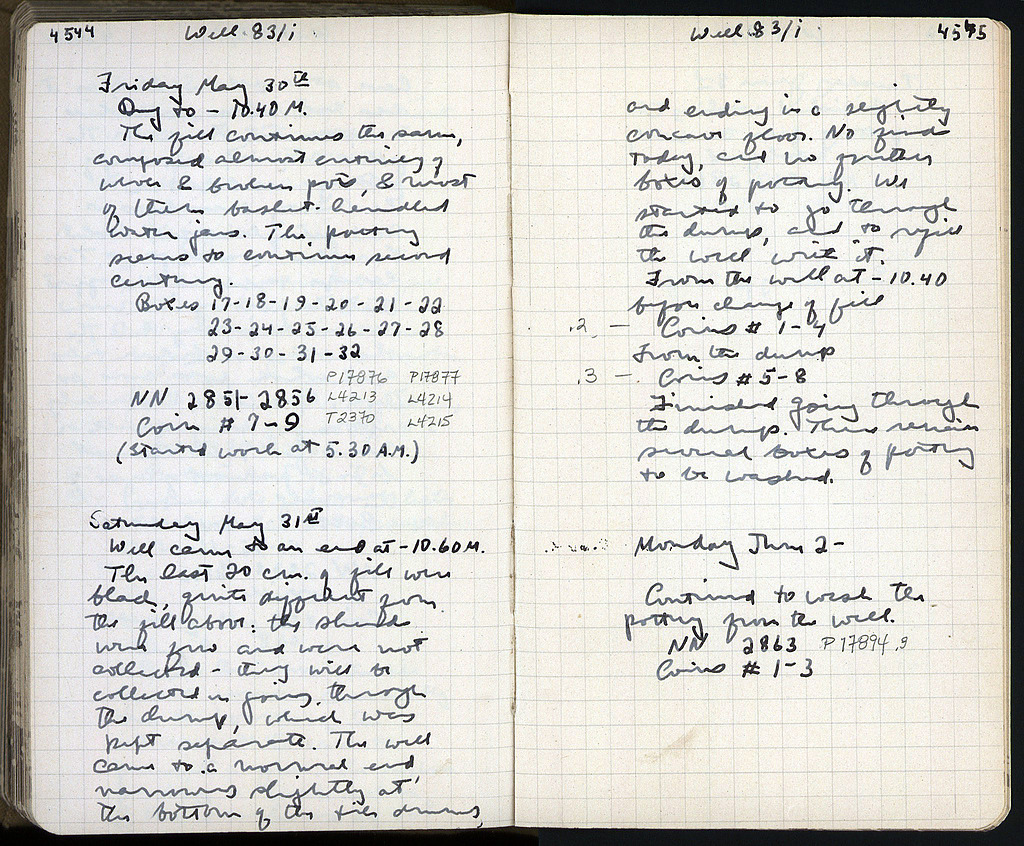 4544 Well 83/i
Friday May 30th
Dug to - 10.40 M.
The fill continues the same,
composed almost entirely of
whole & broken pots, & most
of them basket-handled
water jars. The pottery
seems to continue second
century.
Boxes 17-18-19-20-21-22
23-24-25-26-27-28
29-30-31-32
P17876 P17877
NN 2851-2856 L4213 L4214
Coin # 7-9 T2370 L4215
(Started work at 5.30 A.M.)
Saturday May 31st
Well came to an end at -10.60 M.
The last 20 cm. of fill were
black, quite different from
the fill above: the sherds
were few and were not
collected - they will be
collected in going through
the dump, which was
kept separate. The well
came to a normal end,
narrowing slightly at
the bottom of the tile drums,
Well 83/i 4545
and ending in a slightly
concave floor. No finds
today, and no further
boxes of pottery. We
started to go through
the dump, and to refill
the well with it.
From the well at -10.40
before change of fill
.2 - Coins # 1-4
From the dump
.3 - Coins # 5-8
Finished going through
the dump. There remain
several boxes of pottery
to be washed.
Monday June 2-
Continued to wash the
pottery from the well.
NN 2863 P 17894
Coins # 1-3